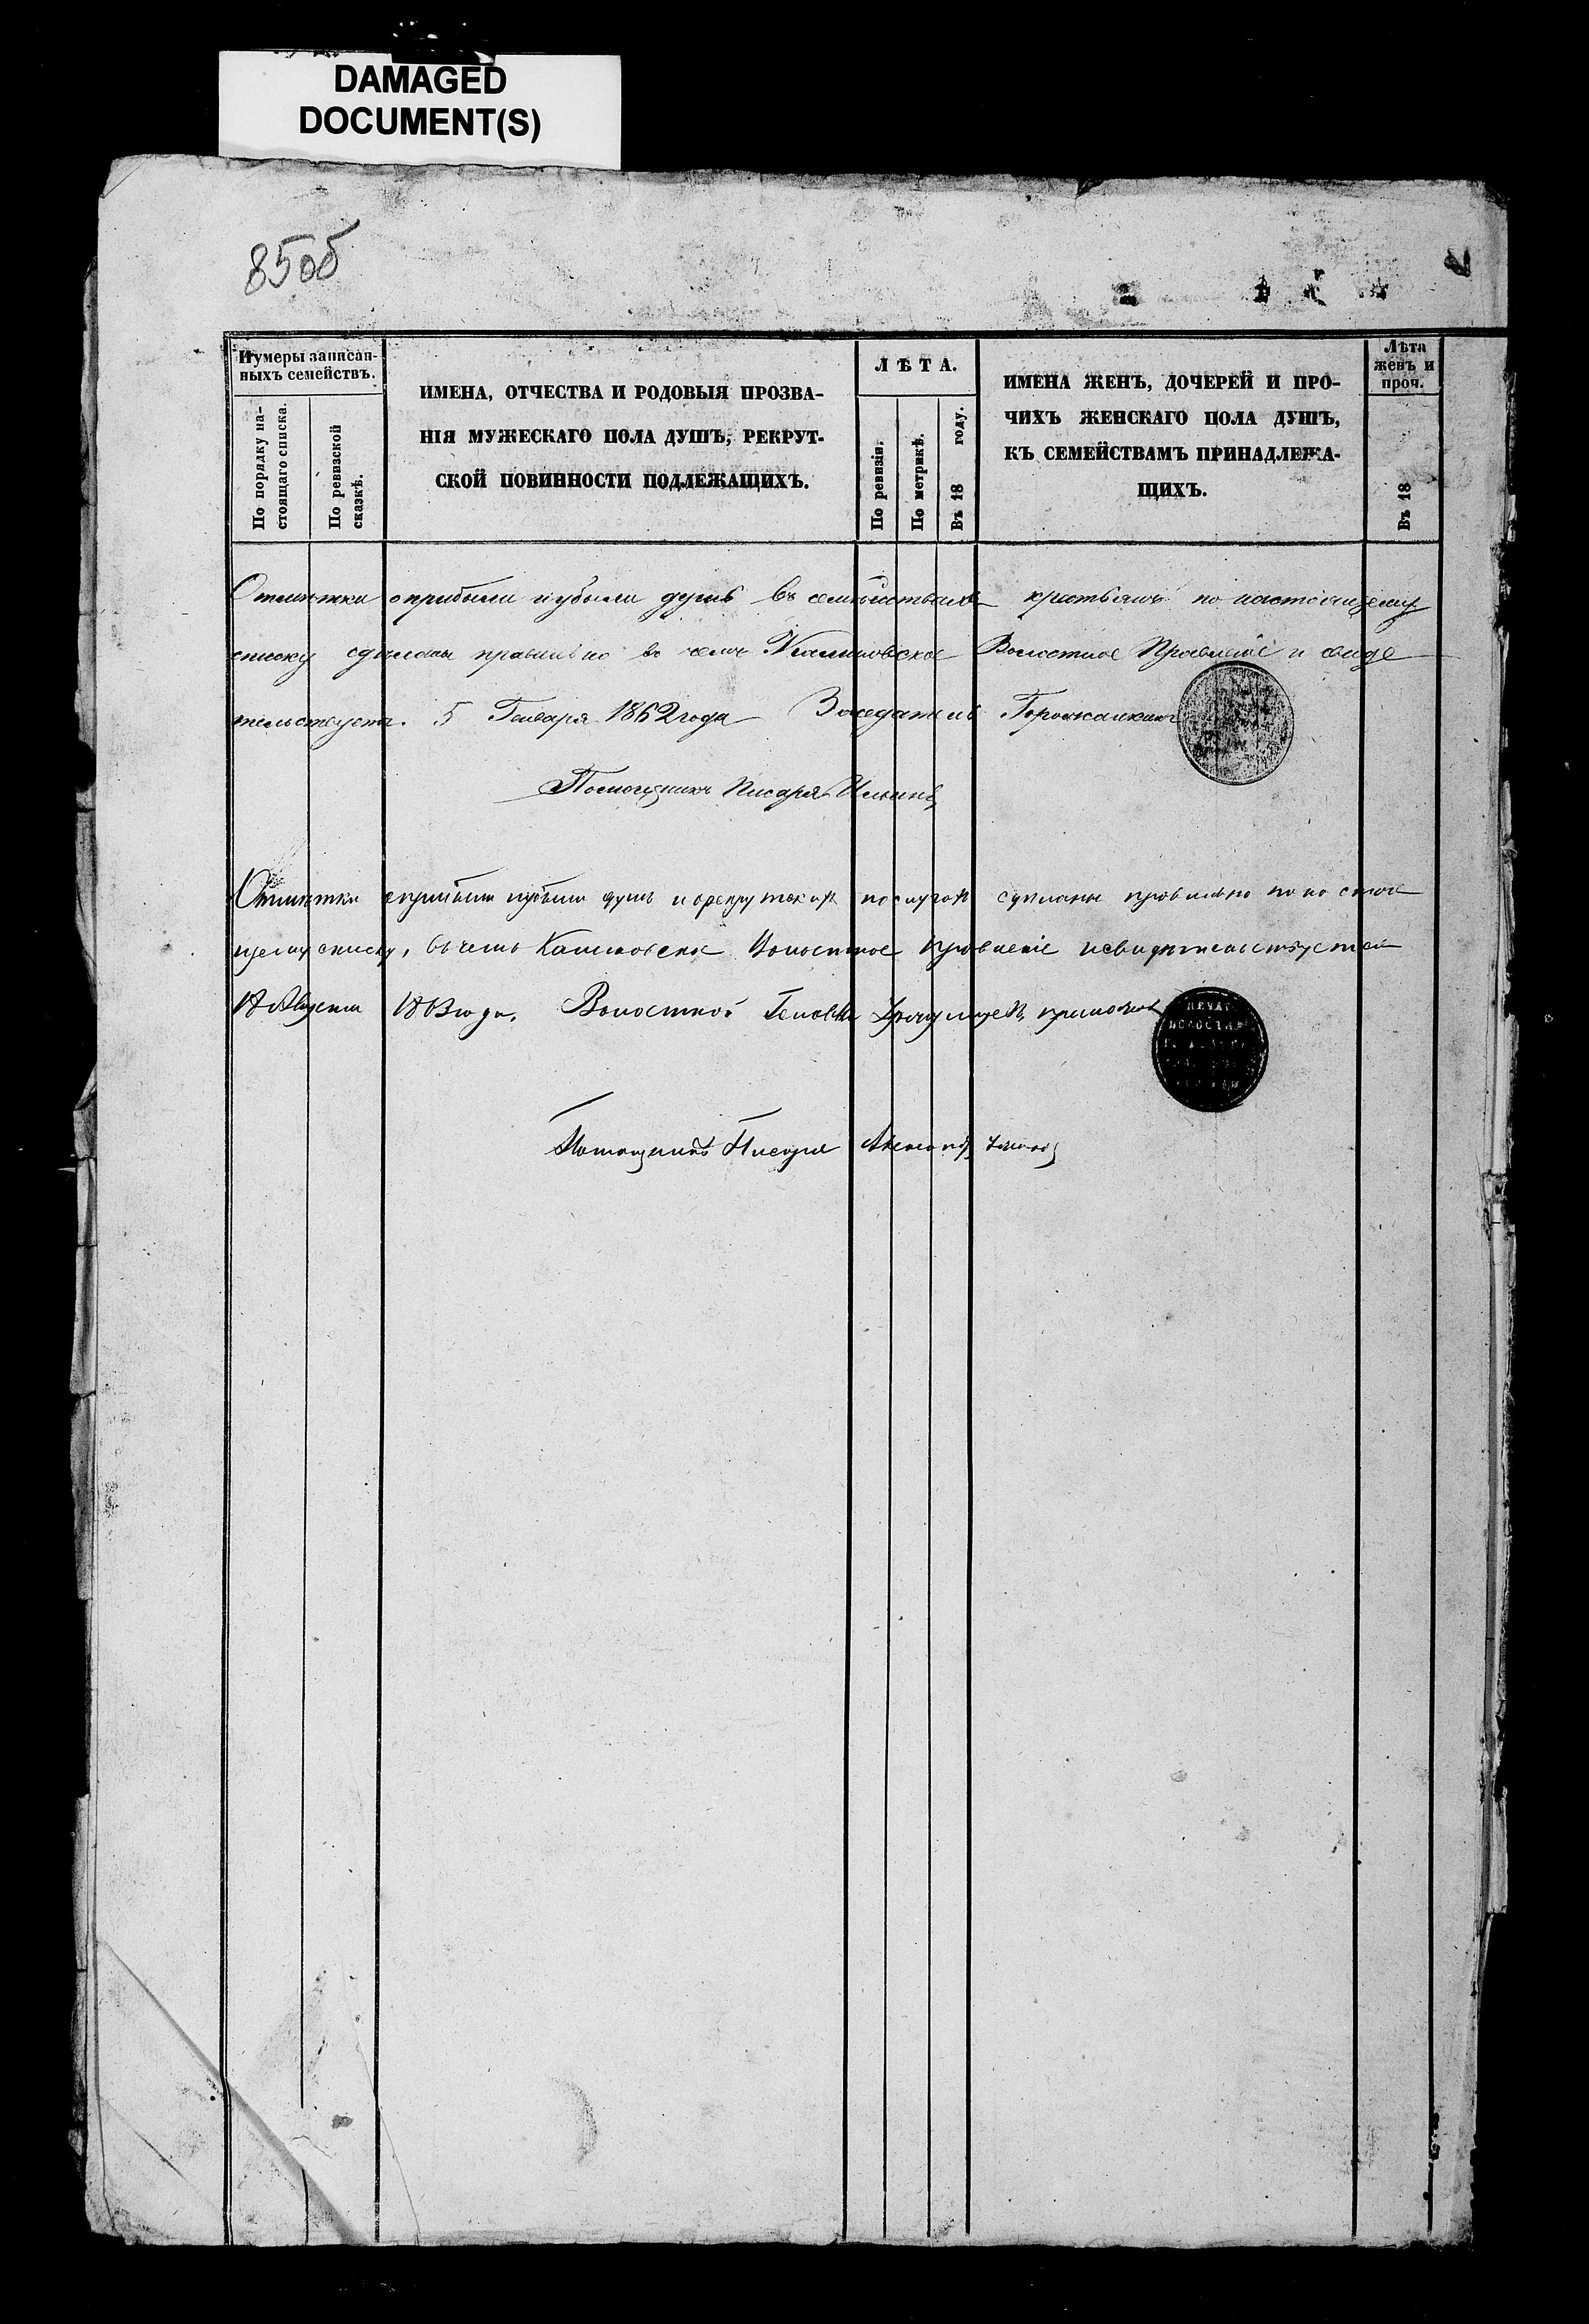 DAMAGED
DOCUMENT(S)
85об
Нумеры записан-
ныхъ семействъ.
По порядку на-
стоящаго списка.
По ревизской
сказкѣ.
ИМЕНА, ОТЧЕСТВА И РОДОВЫЯ ПРОЗВА-
НІЯ МУЖЕСКАГО ПОЛА ДУШЪ, РЕКРУТ-
СКОЙ ПОВИННОСТИ ПОДЛЕЖАЩИХЪ.
ЛѢТА.
По ревизіи.
По метрикѣ.
Въ 18 году.
ИМЕНА ЖЕНЪ, ДОЧЕРЕЙ И ПРО-
ЧИХЪ ЖЕНСКАГО ПОЛА ДУШЪ,
КЪ СЕМЕЙСТВАМЪ ПРИНАДЛЕЖА-
ЩИХЪ.
Лѣта
женъ и
проч.
Въ 18
Отмѣтки о прибыли и убыли душъ въ семѣйствахъ крѣстьянъ по настоящему
списку сдѣланы правильно въ чемъ Волостное Правленіе и свиде
тельствуетъ. 5 Генваря 1862 года Заседатель
Помощникъ Писаря Ильинъ
Отмѣтки о прибыли и убыли душъ и о рекрутской послугѣ сдѣланы правильно по насто
ящему списку, въ чемъ Волостное Правленіе и свидѣтельствуетъ
Августа года. Волостной Голова приложилъ
ПЕЧАТЬ
ВОЛОСТНАГО
Помощникъ Писаря